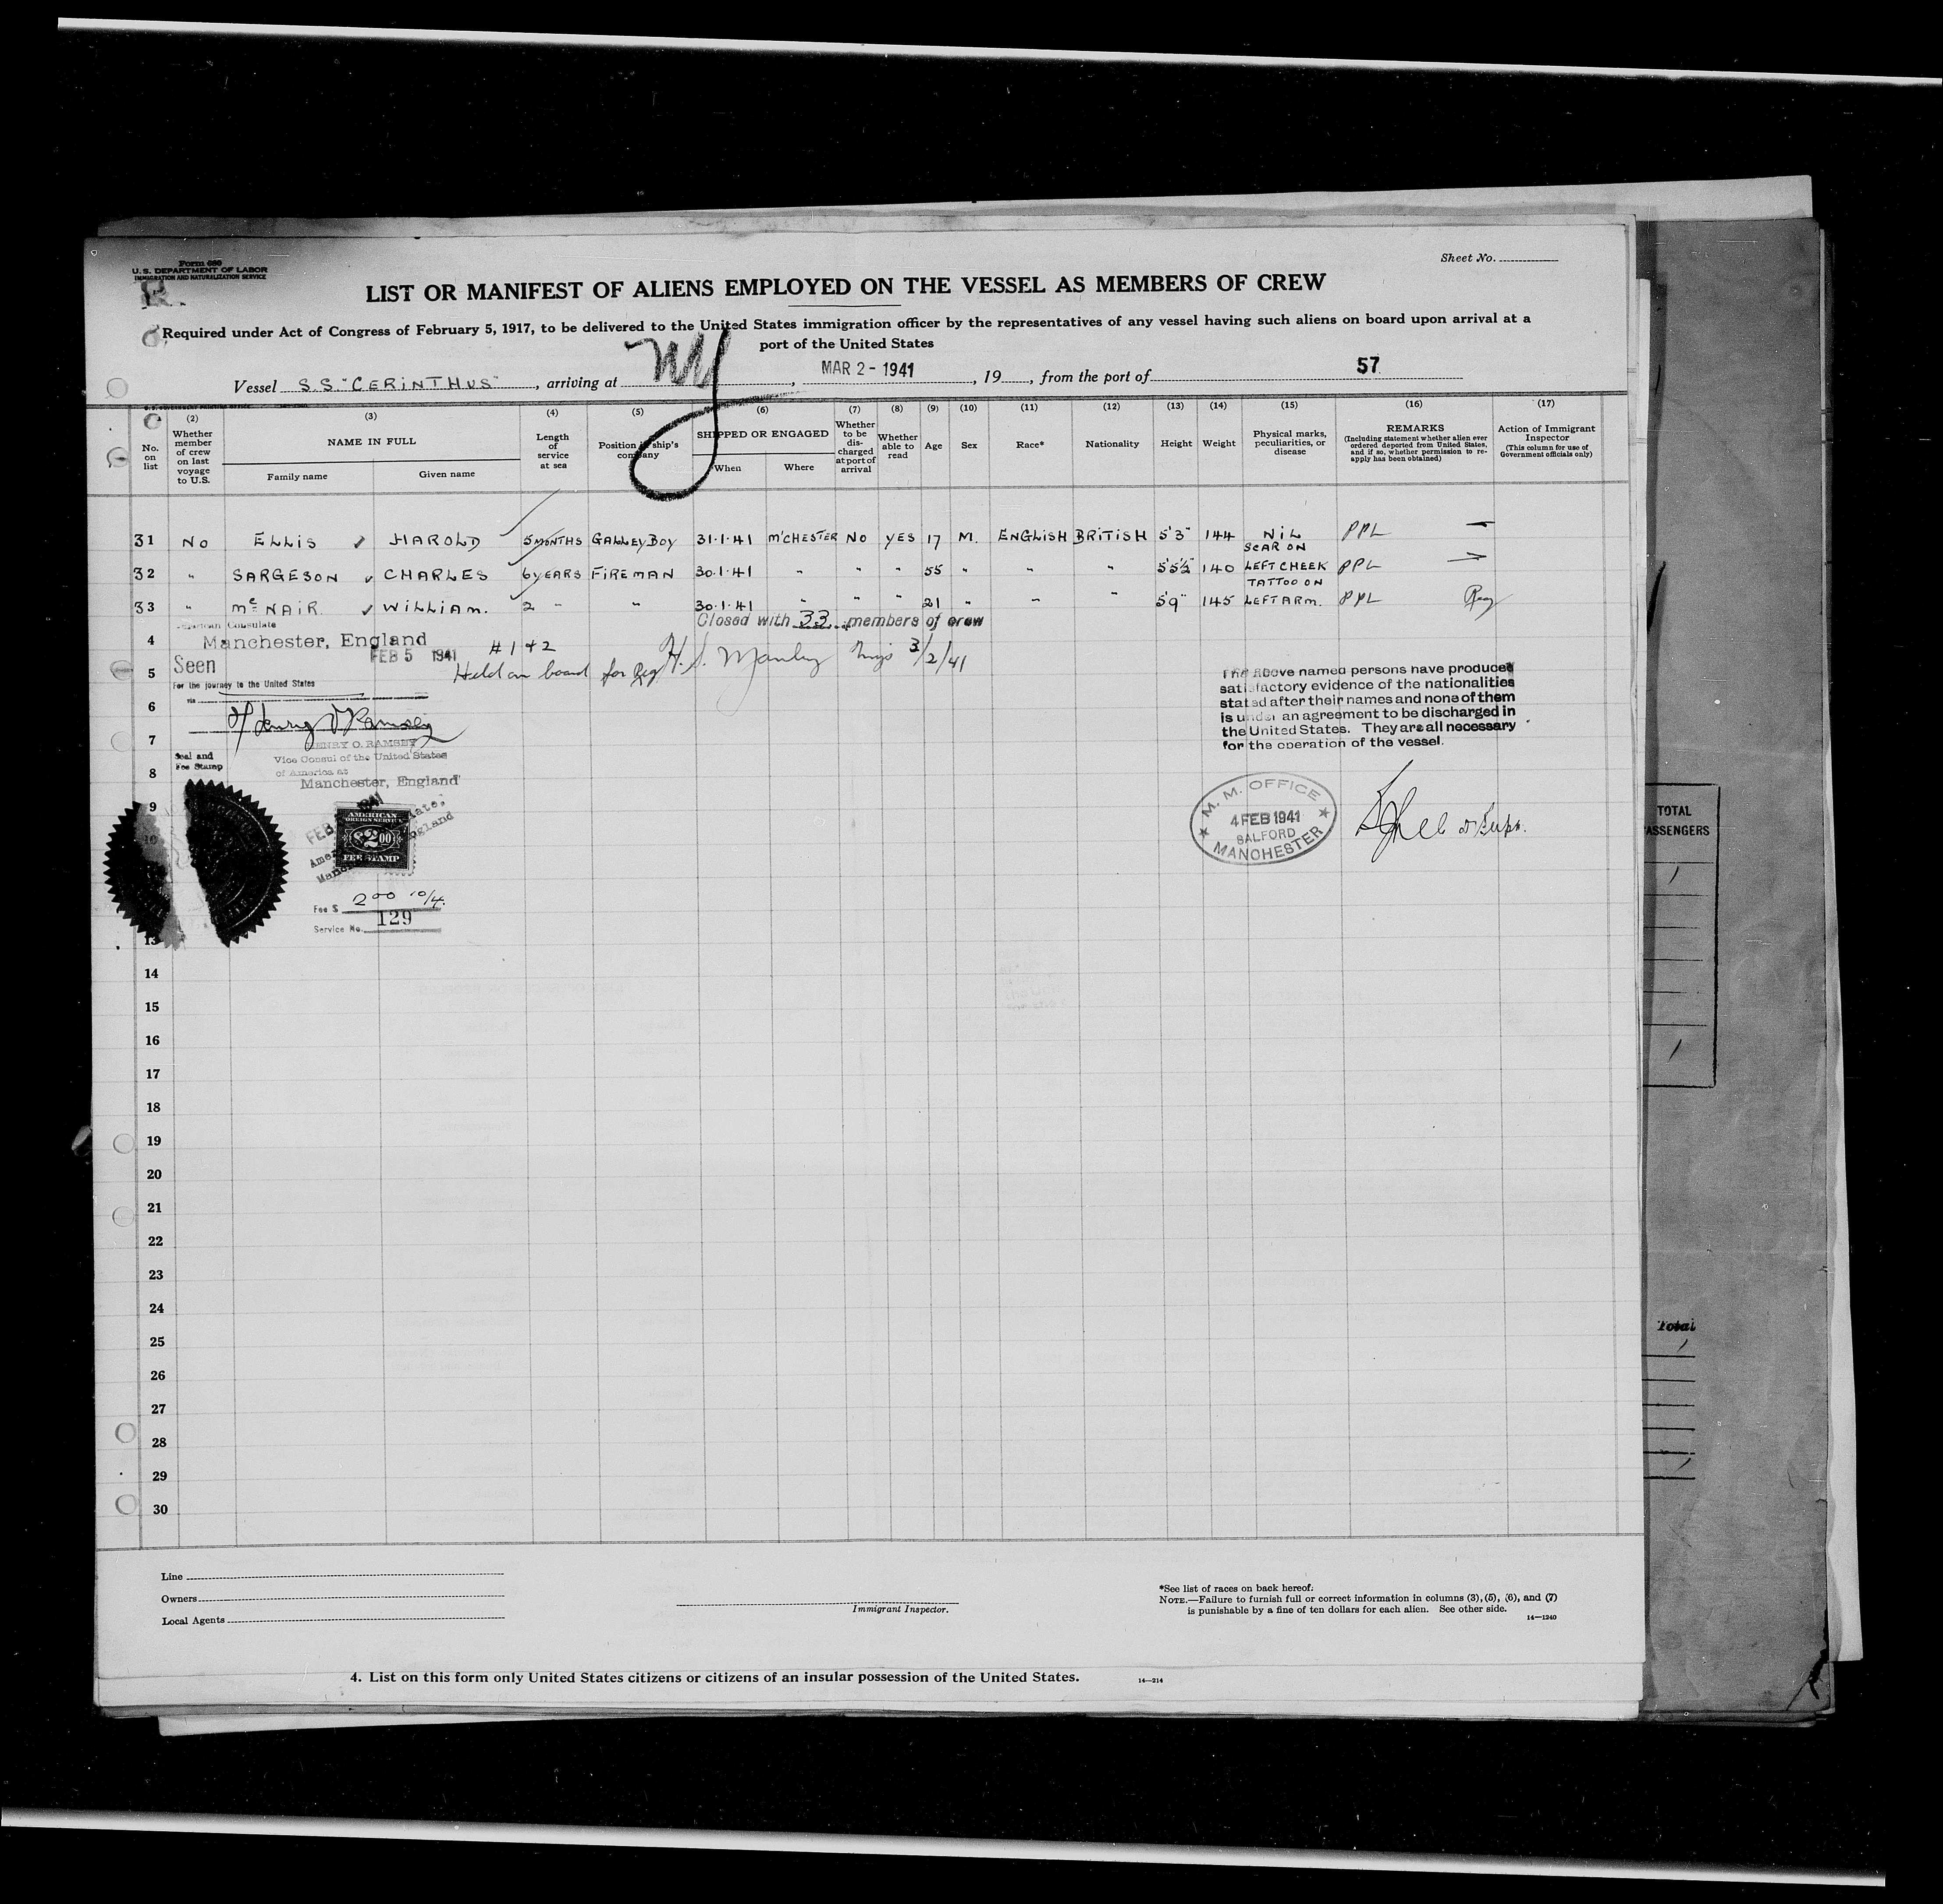 Form 680
U.S. DEPARTMENT OF LABOR
IMMIGRATION AND NATURALIZATION SERVICE
Sheet No.
LIST OR MANIFEST OF ALIENS EMPLOYED ON THE VESSEL AS MEMBERS OF CREW
Required under Act of Congress of February 5, 1917, to be delivered to the United States immigration officer by the representatives of any vessel having such aliens on board upon arrival at a
port of the United States
Vessel S.S. "CERINTHUS", arriving at NY, MAR 2 - 1941, 19, from the port of 57
(2) (3) (4) (5) (6) (7) (8) (9) (10) (11) (12) (13) (14) (15) (16) (17)
No. on list
Whether member of crew on last voyage to U.S.
NAME IN FULL
Family name
Given name
Length of service at sea
Position in ship's company
SHIPPED OR ENGAGED
When
Where
Whether to be discharged at port of arrival
Whether able to read
Age
Sex
Race*
Nationality
Height
Weight
Physical marks, peculiarities, or disease
REMARKS
(Including statement whether alien ever ordered deported from United States, and if so, whether permission to reapply has been obtained)
Action of Immigrant Inspector
(This column for use of Government officials only)
31 NO ELLIS HAROLD 5 MONTHS GALLEY BOY 31·1·41 M'CHESTER NO YES 17 M. ENGLISH BRITISH 5'3" 144 NIL PPL
32 " SARGESON CHARLES 6 YEARS FIREMAN 30·1·41 " " " 55 " " " 5'5½" 140 SCAR ON LEFT CHEEK PPL
33 " McNAIR WILLIAM. 2 " " 30·1·41 " " " 21 " " " 5'9" 145 TATTOO ON LEFT ARM. PPL
Closed with 33 members of crew
American Consulate
4 Manchester, England
FEB 5 1941
# 1 + 2
5 Seen
Held on board for
H. S. Manley 3/2/41
For the journey to the United States
via
6
Henry O Ramsey
7
HENRY O. RAMSEY
Vice Consul of the United States
of America at
Seal and
Fee Stamp
8 Manchester, England
The above named persons have produced
satisfactory evidence of the nationalities
stated after their names and none of them
is under an agreement to be discharged in
the United States. They are all necessary
for the operation of the vessel.
9
10
AMERICAN
FOREIGN SERVICE
$2.00
FEE STAMP
M. M. OFFICE
4 FEB 1941
SALFORD
MANCHESTER
Fee $ 2 00 10/4.
Service No. 129
13
14
15
16
17
18
19
20
21
22
23
24
25
26
27
28
29
30
TOTAL
PASSENGERS
Total
Line
Owners
Local Agents
Immigrant Inspector.
*See list of races on back hereof.
NOTE.—Failure to furnish full or correct information in columns (3), (5), (6), and (7)
is punishable by a fine of ten dollars for each alien. See other side.
14—1240
4. List on this form only United States citizens or citizens of an insular possession of the United States.
14—214